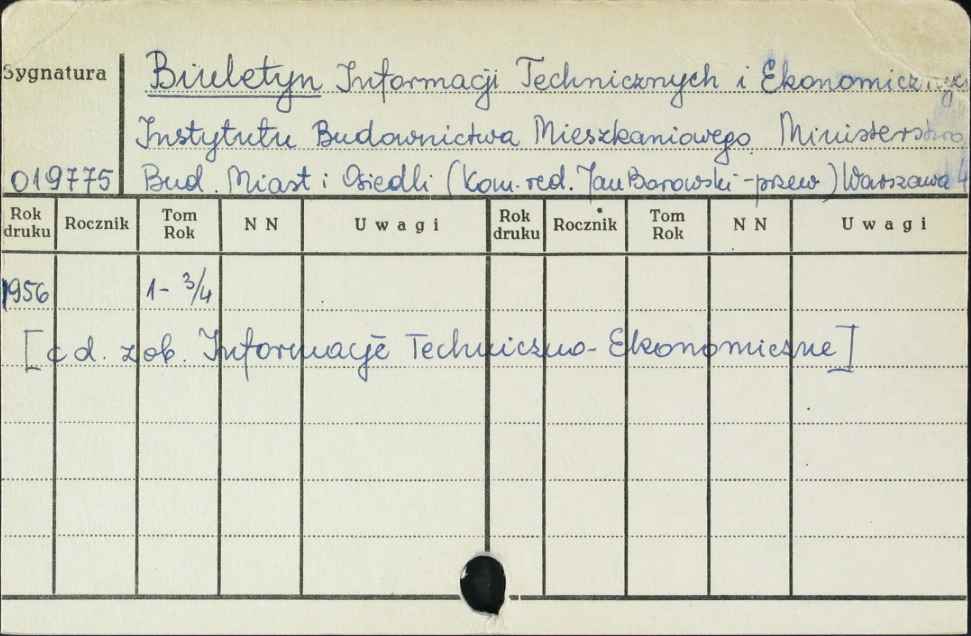 Sygnatura
Biuletyn Informacji Technicznych i Ekonomicznych
Instytutu Budownictwa Mieszkaniowego Ministerstwa
019775 Bud. Miast i Osiedli (Kom. red. Jan Borowski - przew) Warszawa
Rok druku Rocznik Tom Rok NN Uwagi Rok druku Rocznik Tom Rok NN Uwagi
1956 1-3/4
[c d. zob. Informacje Techniczno-Ekonomiczne]